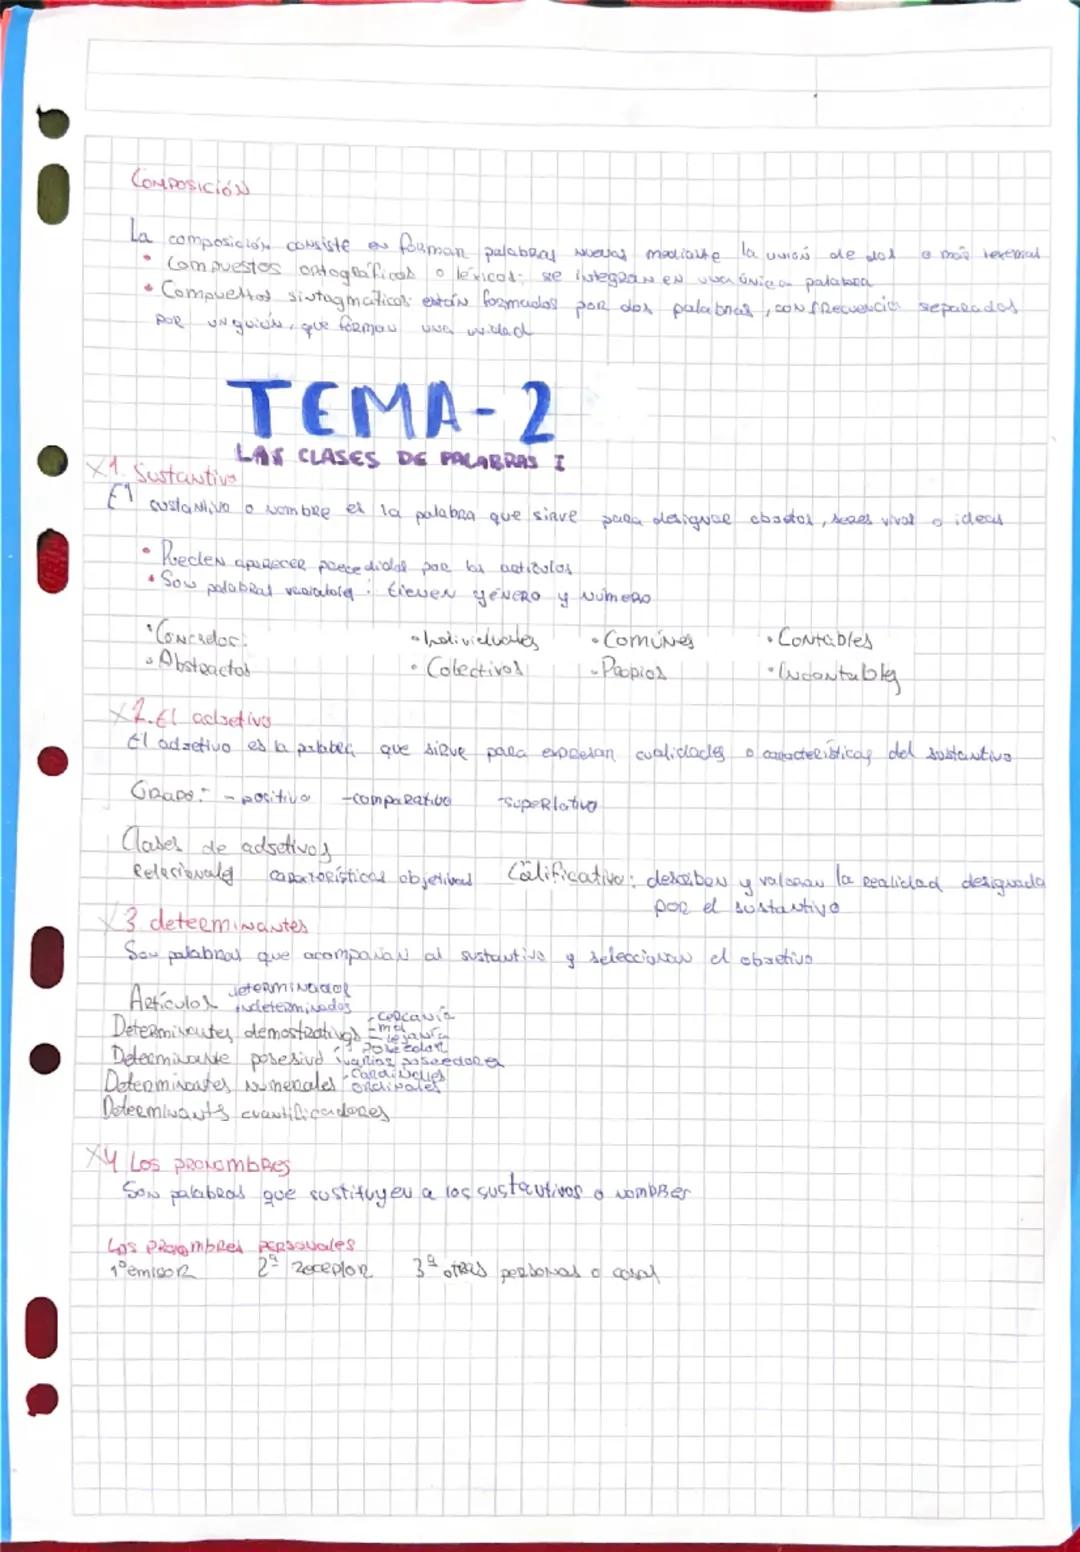 COMPOSICIÓN
La composición consiste en forman palabras nuevas mediante la unión de dos o más lexemas
• Compuestos ortográficos o léxicos: se integran en una única palabra
• Compuestos sintagmáticos: están formados por dos palabras, con frecuencia separados
por un guión, que forman una unidad
TEMA-2
LAS CLASES DE PALABRAS I
X1. Sustantivo
El sustantivo o nombre es la palabra que sirve para designar objetos, seres vivos o ideas
• Pueden aparecer precedidos por los artículos
• Son palabras variables: tienen género y número
• Concretos: • Individuales • Comunes • Contables
• Abstractos • Colectivos • Propios • Incontables
X2. El adjetivo
El adjetivo es la palabra que sirve para expresan cualidades o características del sustantivo
Grado: - positivo - comparativo - superlativo
Clases de adjetivos
Relacionales características objetivas Calificativo: describen y valoran la realidad designada
por el sustantivo
X3. determinantes
Son palabras que acompañan al sustantivo y seleccionan el objetivo
Artículos determinados
indeterminados
Determinantes demostrativos - cercanía
- lejanía
Determinante posesivo poseedor
varios poseedores
Determinantes numerales - Cardinales
ordinales
Determinants cuantificadores
X4 Los pronombres
Son palabras que sustituyen a los sustantivos o nombres
Los pronombres personales
1º emisor 2ª receptor 3ª otras personas o cosas